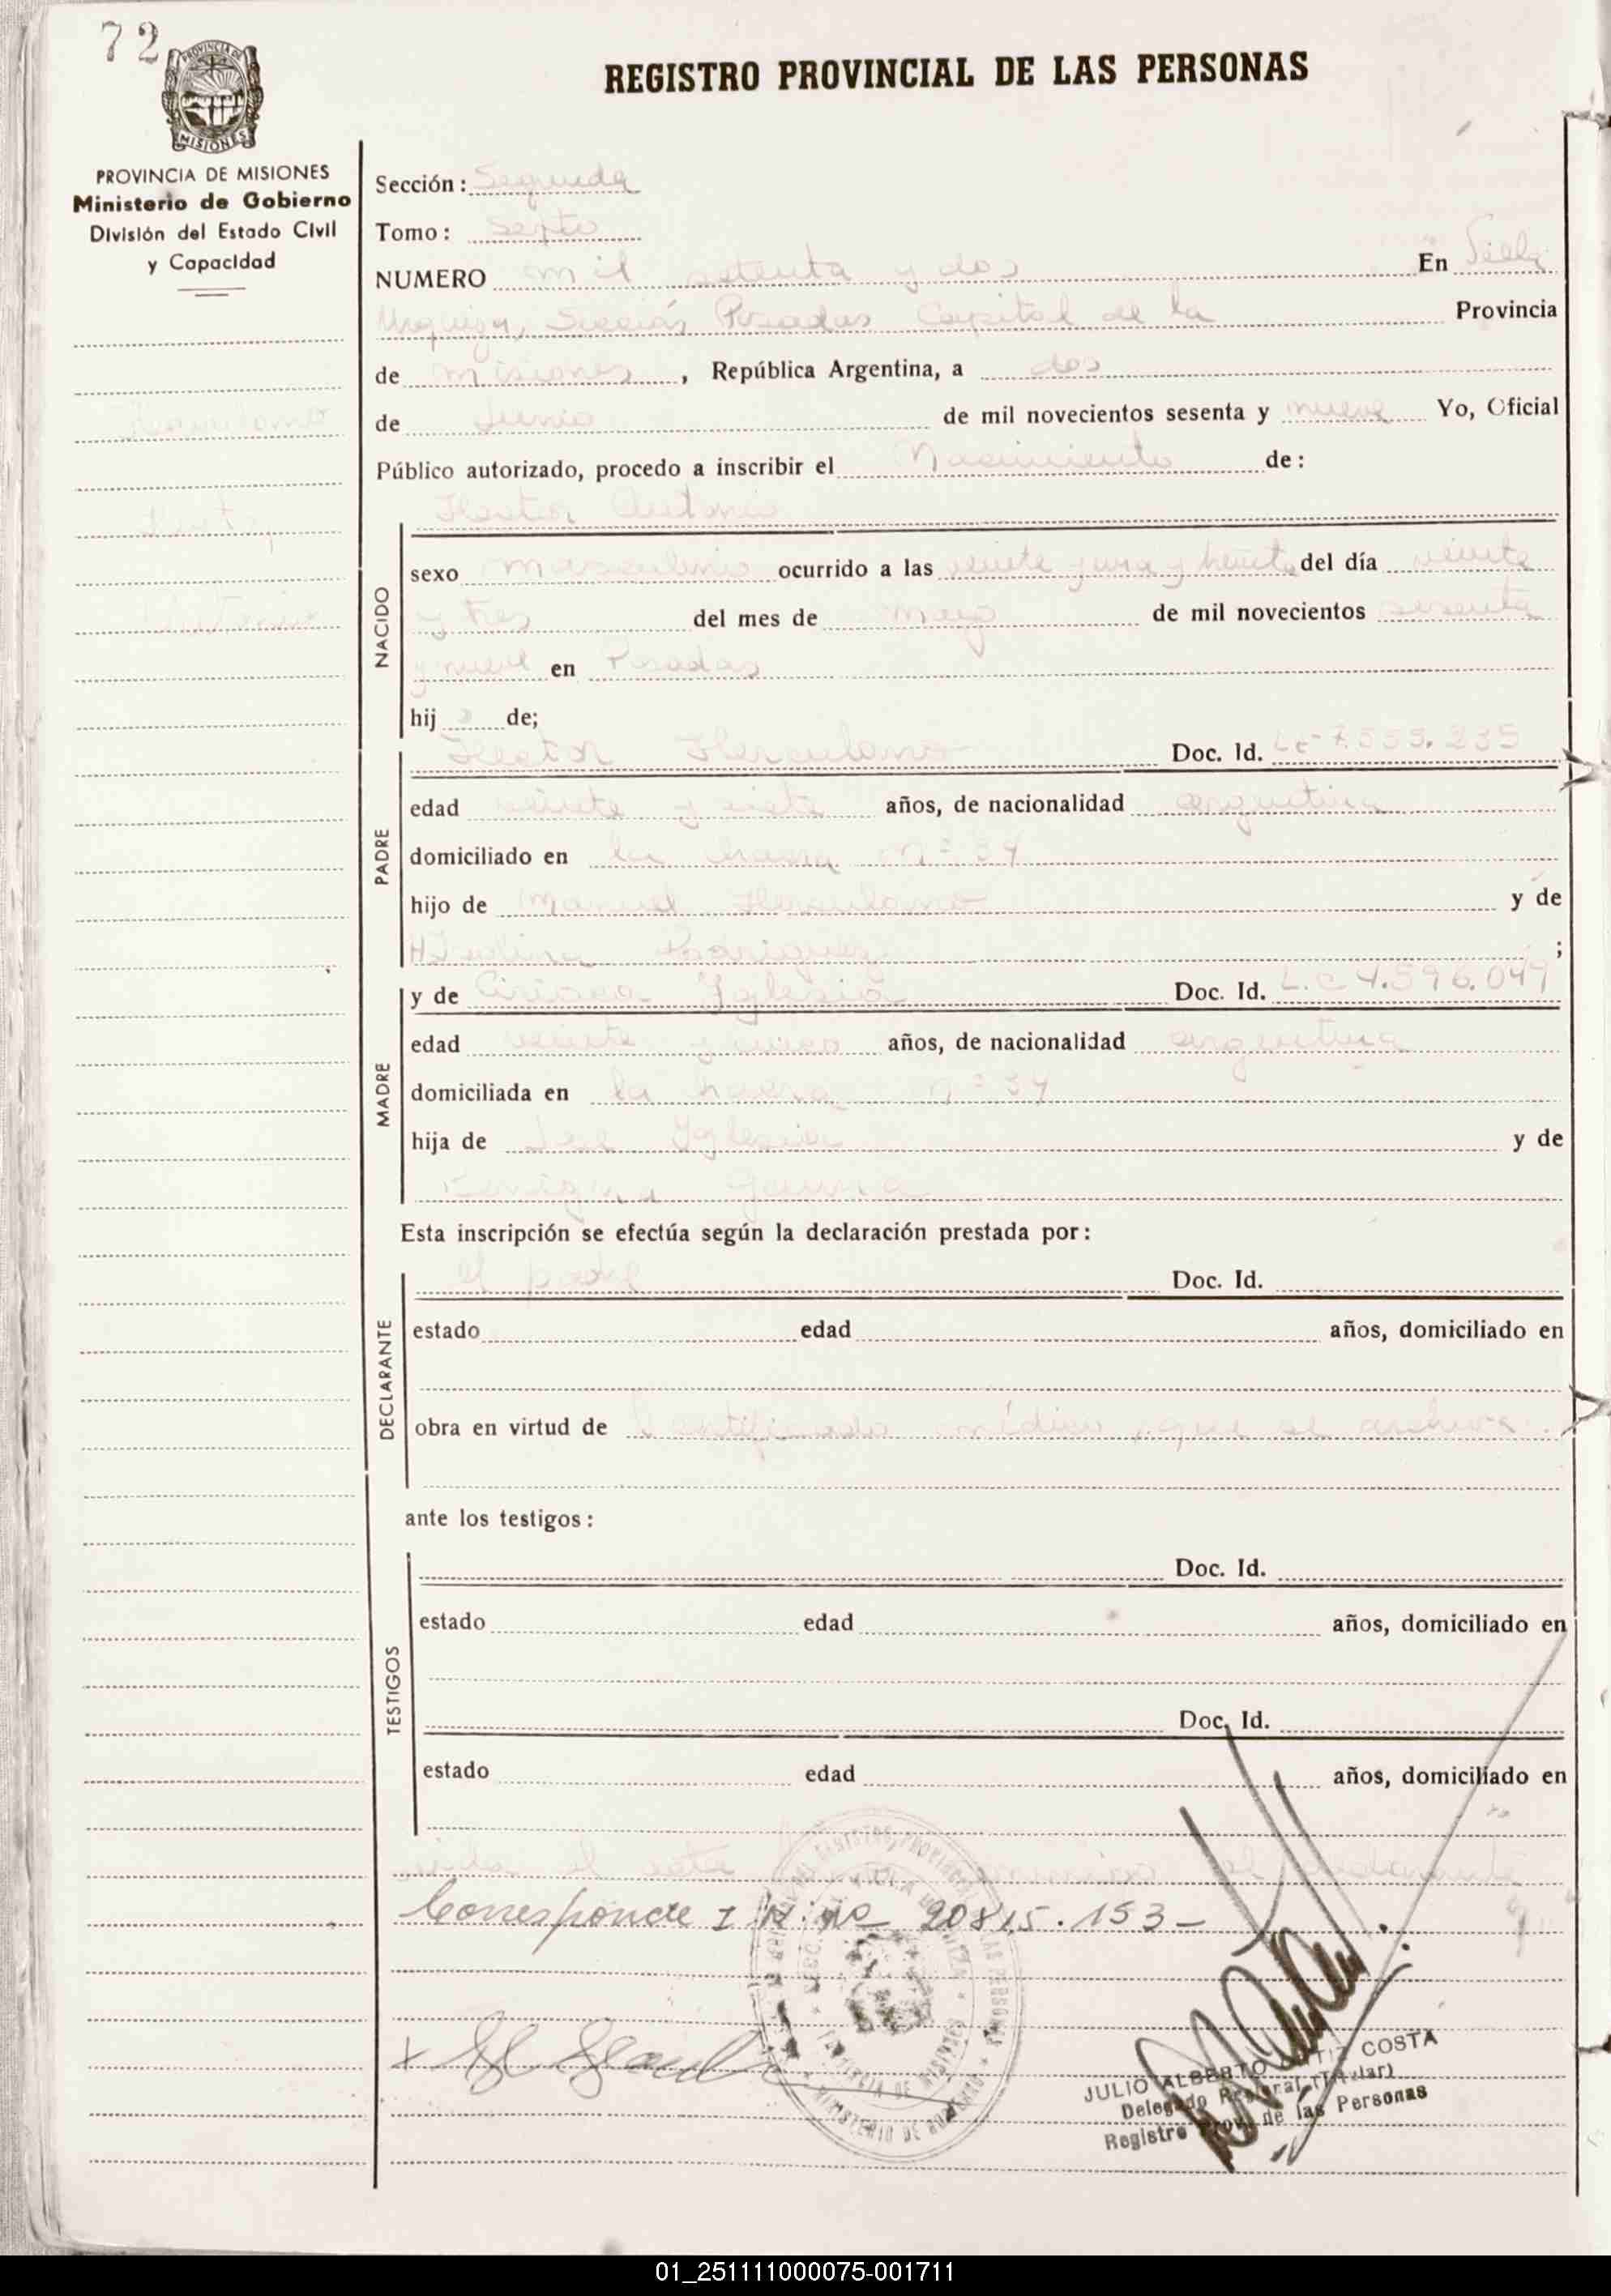 72
PROVINCIA DE
MISIONES
REGISTRO PROVINCIAL DE LAS PERSONAS
PROVINCIA DE MISIONES
Ministerio de Gobierno
División del Estado Civil
y Capacidad
Sección: Segunda
Tomo: Septo
NUMERO mil setenta y dos En Villa
Urquiza, Sección Posadas Capital de la Provincia
de Misiones, República Argentina, a dos
de Junio de mil novecientos sesenta y nueve Yo, Oficial
Público autorizado, procedo a inscribir el Nacimiento de:
Herculano
Hector Antonio
NACIDO
sexo masculino ocurrido a las veinte y una y treinta del día veinte
y tres del mes de mayo de mil novecientos sesenta
y nueve en Posadas
hijo de;
PADRE
Hector Herculano Doc. Id. 7.555.235
edad veinte y siete años, de nacionalidad argentina
domiciliado en la chacra nº 34
hijo de Manuel Herculano y de
Rodriguez;
MADRE
y de Ciriaca Yglesia Doc. Id. L.C 4.596.049
edad veinte y cinco años, de nacionalidad argentina
domiciliada en la chacra nº 34
hija de José Yglesia y de
Gauna
Esta inscripción se efectúa según la declaración prestada por:
DECLARANTE
el padre Doc. Id.
estado edad años, domiciliado en
obra en virtud de Certificado médico, que se archiva.
ante los testigos:
TESTIGOS
Doc. Id.
estado edad años, domiciliado en
Doc. Id.
estado edad años, domiciliado en
el acta el declarante
Corresponde I. Nº 20815.153-
JULIO ALBERTO COSTA
Delegado Regional (Titular)
Registro Prov. de las Personas
01_251111000075-001711